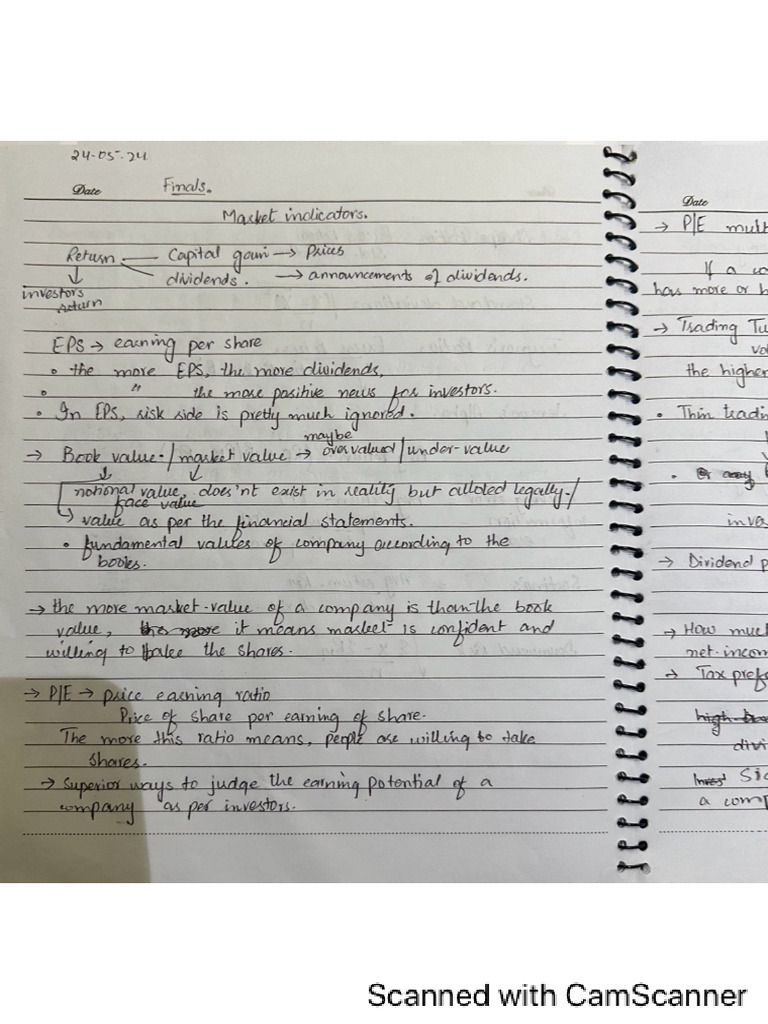 24-05-24
Date Finals.
Market indicators.
Return — Capital gain → Prices
dividends. → announcements of dividends.
investors
return
EPS → earning per share
• the more EPS, the more dividends,
• " the more positive news for investors.
• In EPS, risk side is pretty much ignored.
maybe
→ Book value-/market value → overvalued/under-value
notional value, does'nt exist in reality but alloted legally-/
face value
value as per the financial statements.
• fundamental values of company according to the
books.
→ the more market-value of a company is than the book
value, it means market is confident and
willing to take the shares.
→ P/E → price earning ratio
Price of share per earning of share.
The more this ratio means, people are willing to take
shares.
→ Superior ways to judge the earning potential of a
company as per investors.
Date
→ P/E mult
If a co
has more or h
→ Trading Tu
vol
the higher
• Thin tradi
inves
→ Dividend p
→ How muc
net-incom
→ Tax pref
divi
a comp
Scanned with CamScanner